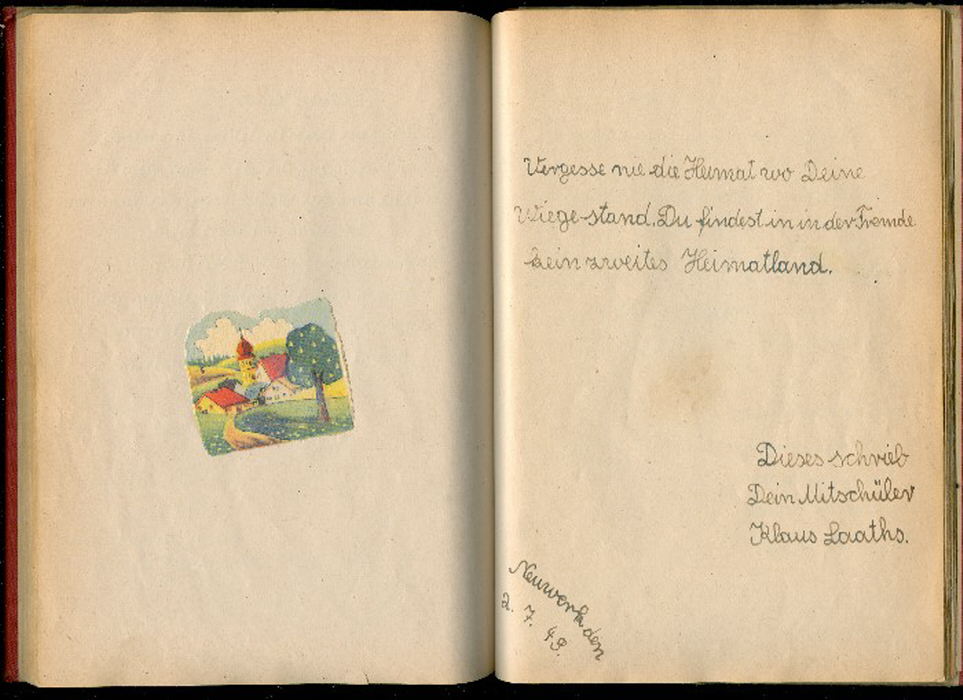 Vergesse nie die Heimat wo Deine
Wiege stand. Du findest in in der Fremde
kein zweites Heimatland.
Dieses schrieb
Dein Mitschüler
Klaus Laaths.
Neuwerk den
2. 7. 49.